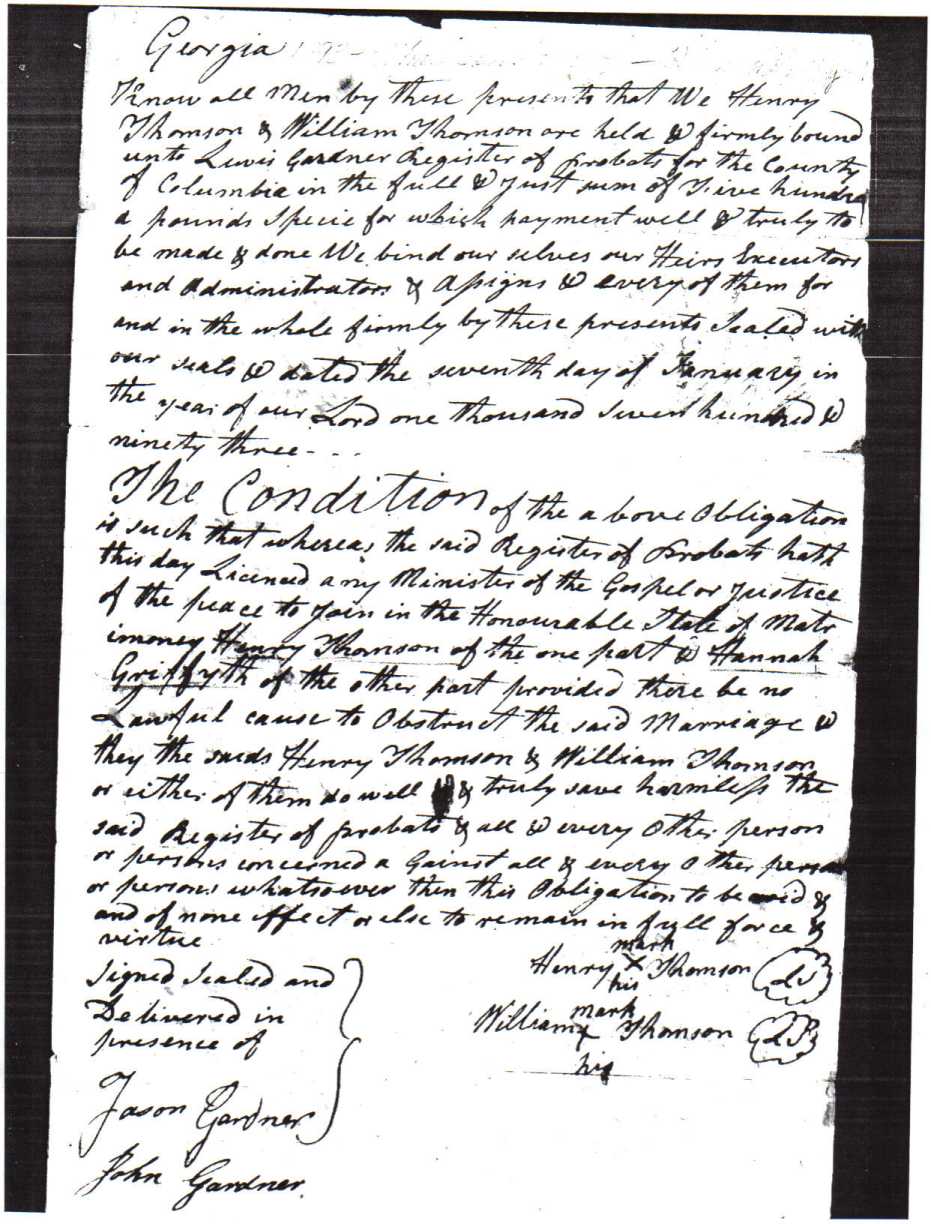 Georgia
Know all Men by these presents that We Henry
Thomson & William Thomson are held & firmly bound
unto Lewis Gardner Register of probats for the County
of Columbia in the full & Just sum of Five hundre
d pounds Specie for which payment well & truly to
be made & done We bind our selves our Heirs Executors
and Administrators & Assigns & every of them for
and in the whole firmly by these presents Sealed with
our seals & dated the seventh day of January in
the year of our Lord one thousand seven hundred &
ninety three - - -
The Condition of the above Obligation
is such that whereas the said Register of probats hath
this day Licenced any Minister of the Gospel or Justice
of the peace to Join in the Honourable State of Matr
imoney Henry Thomson of the one part & Hannah
Griffyth of the other part provided there be no
Lawful cause to Obstruct the said Marriage &
they the saids Henry Thomson & William Thomson
or either of them do well & truly save harmless the
said Register of probats & all & every Other person
or persons concerned a Gainst all & every Other person
or persons whatsoever then this Obligation to be void &
and of none effect or else to remain in full force &
virtue
mark
Henry X Thomson LS
his
mark
William X Thomson LS
his
Signed Sealed and
Delivered in
presence of
Jason Gardner
John Gardner